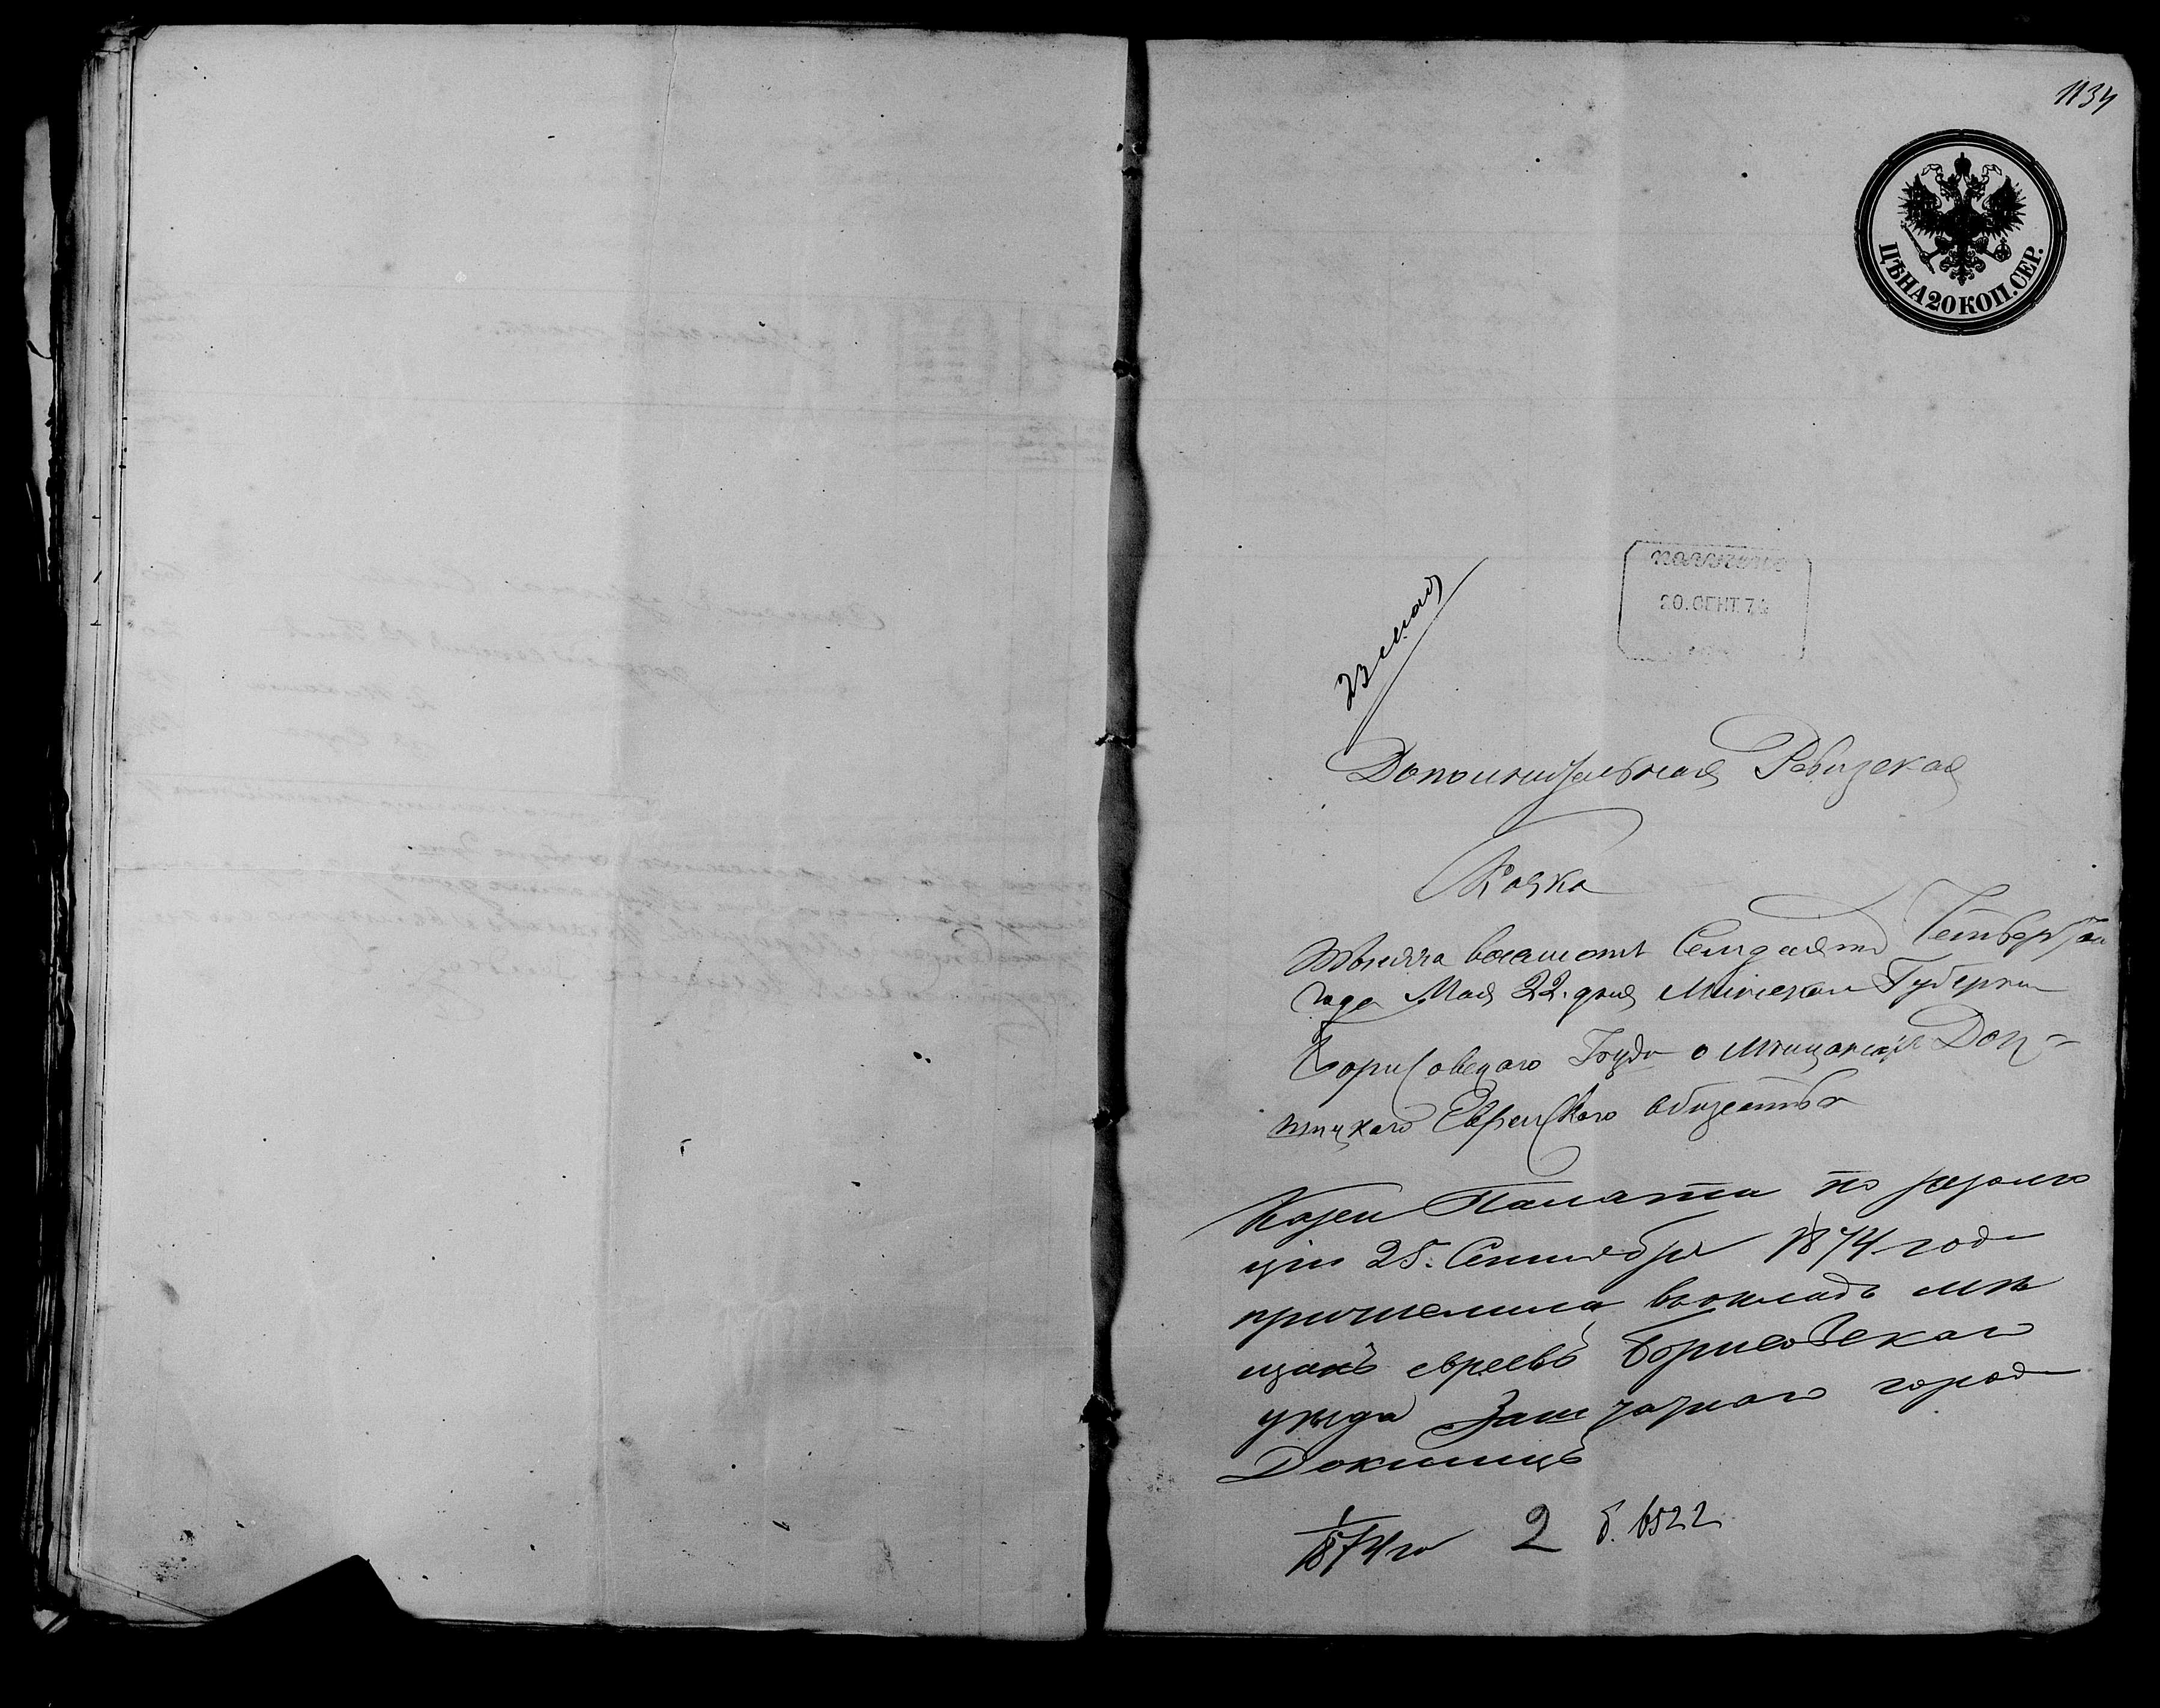 1134
ЦѢНА 20 КОП. СЕР.
ПОЛУЧЕНО
20. СЕНТ. 74
23 мая
Дополнительная Ревизская
Скаска
Тысяча восемсотъ Семдесятъ Четвертаго
года Мая 22 дня Минской Губернии
Борисовскаго Уезда о мещанахъ Док-
шицкаго Еврейскаго общества
Казен Палата по резолю
ціи 25. Сентября 1874 года
причислила въ окладъ мѣ
щанъ евреевъ Борисовскаго
уѣзда Заштатнаго города
Докшицъ
1874 го 2 б. 6522